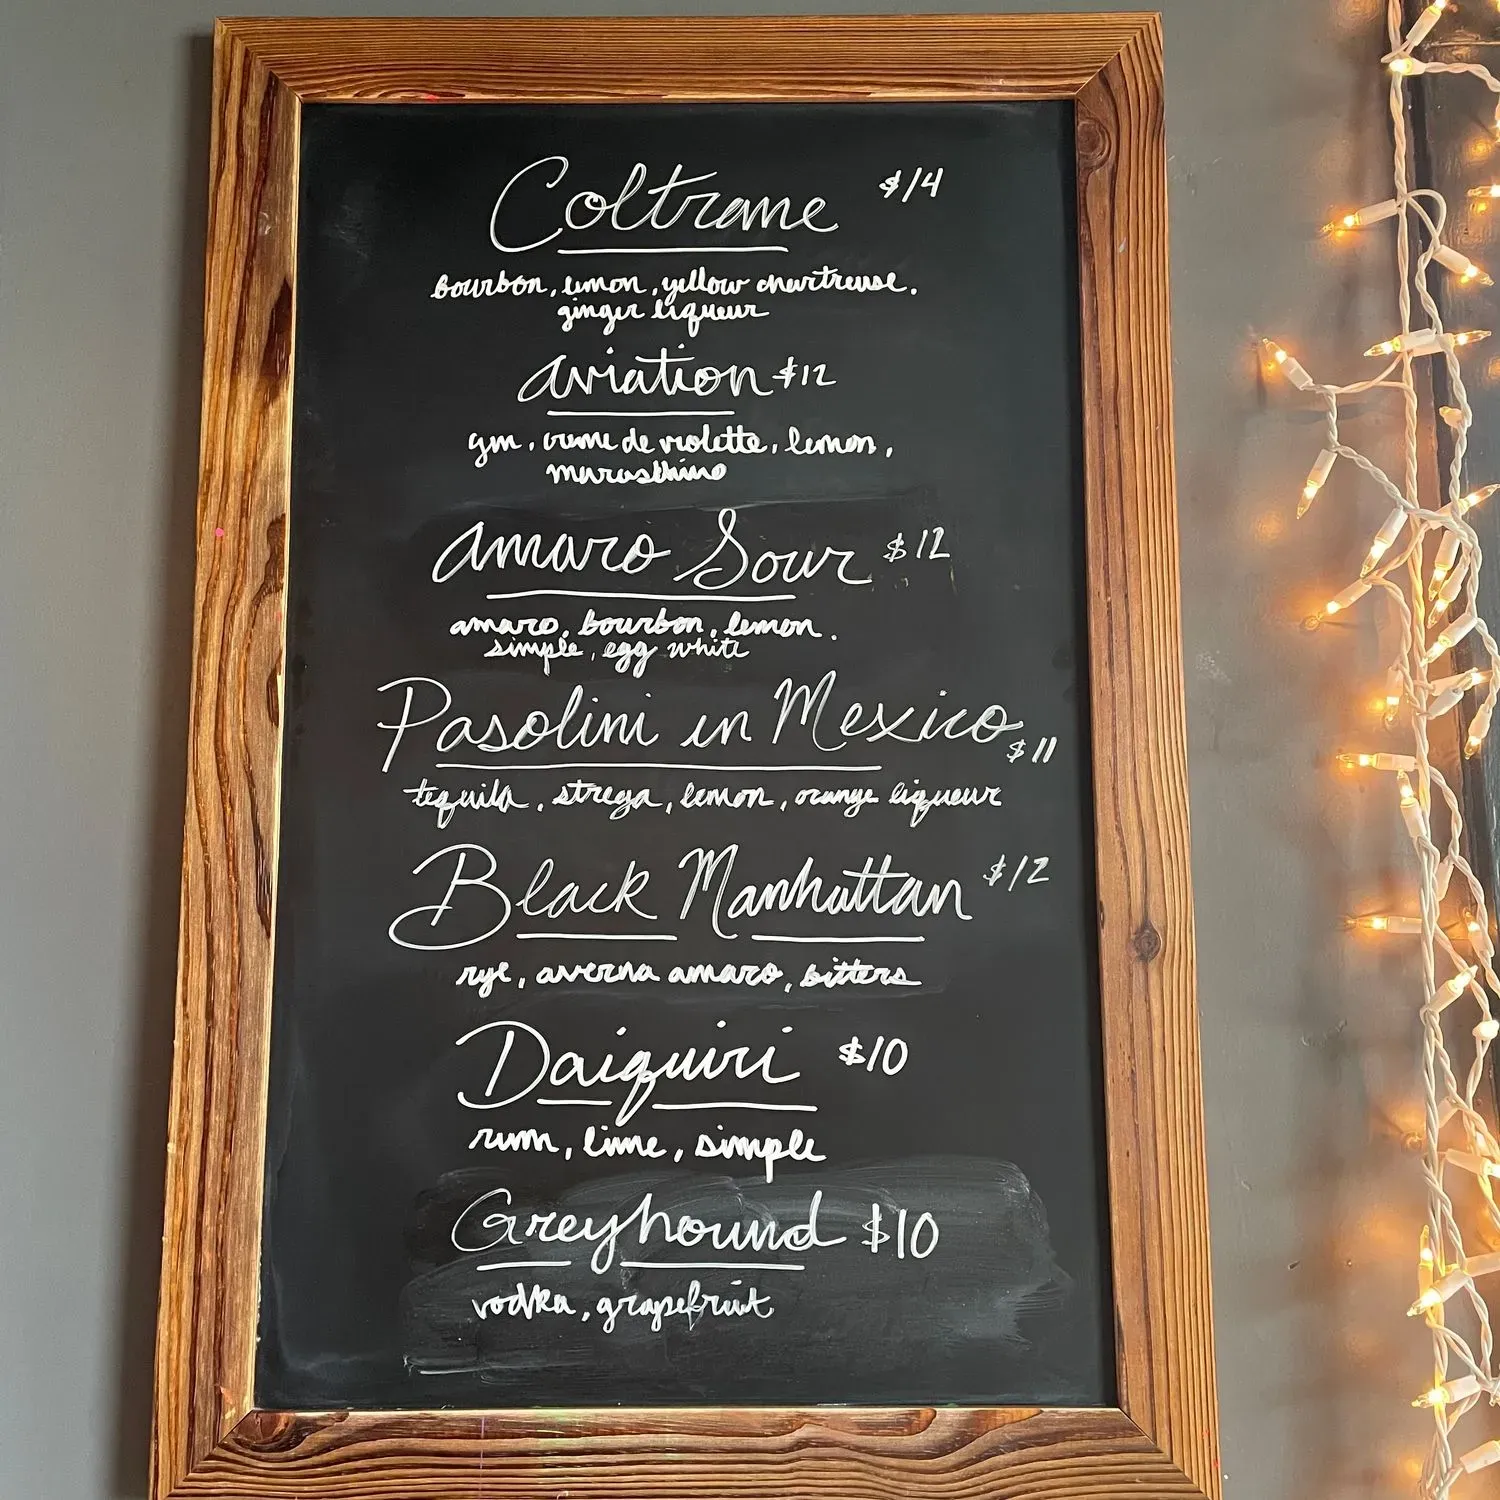 Coltrane $14
bourbon, lemon, yellow chartreuse,
ginger liqueur
Aviation $12
gin, creme de violette, lemon,
marasthino
Amaro Sour $12
amaro, bourbon, lemon,
simple, egg white
Pasolini in Mexico $11
tequila, strega, lemon, orange liqueur
Black Manhattan $12
rye, averna amaro, bitters
Daiquiri $10
rum, lime, simple
Greyhound $10
vodka, grapefruit